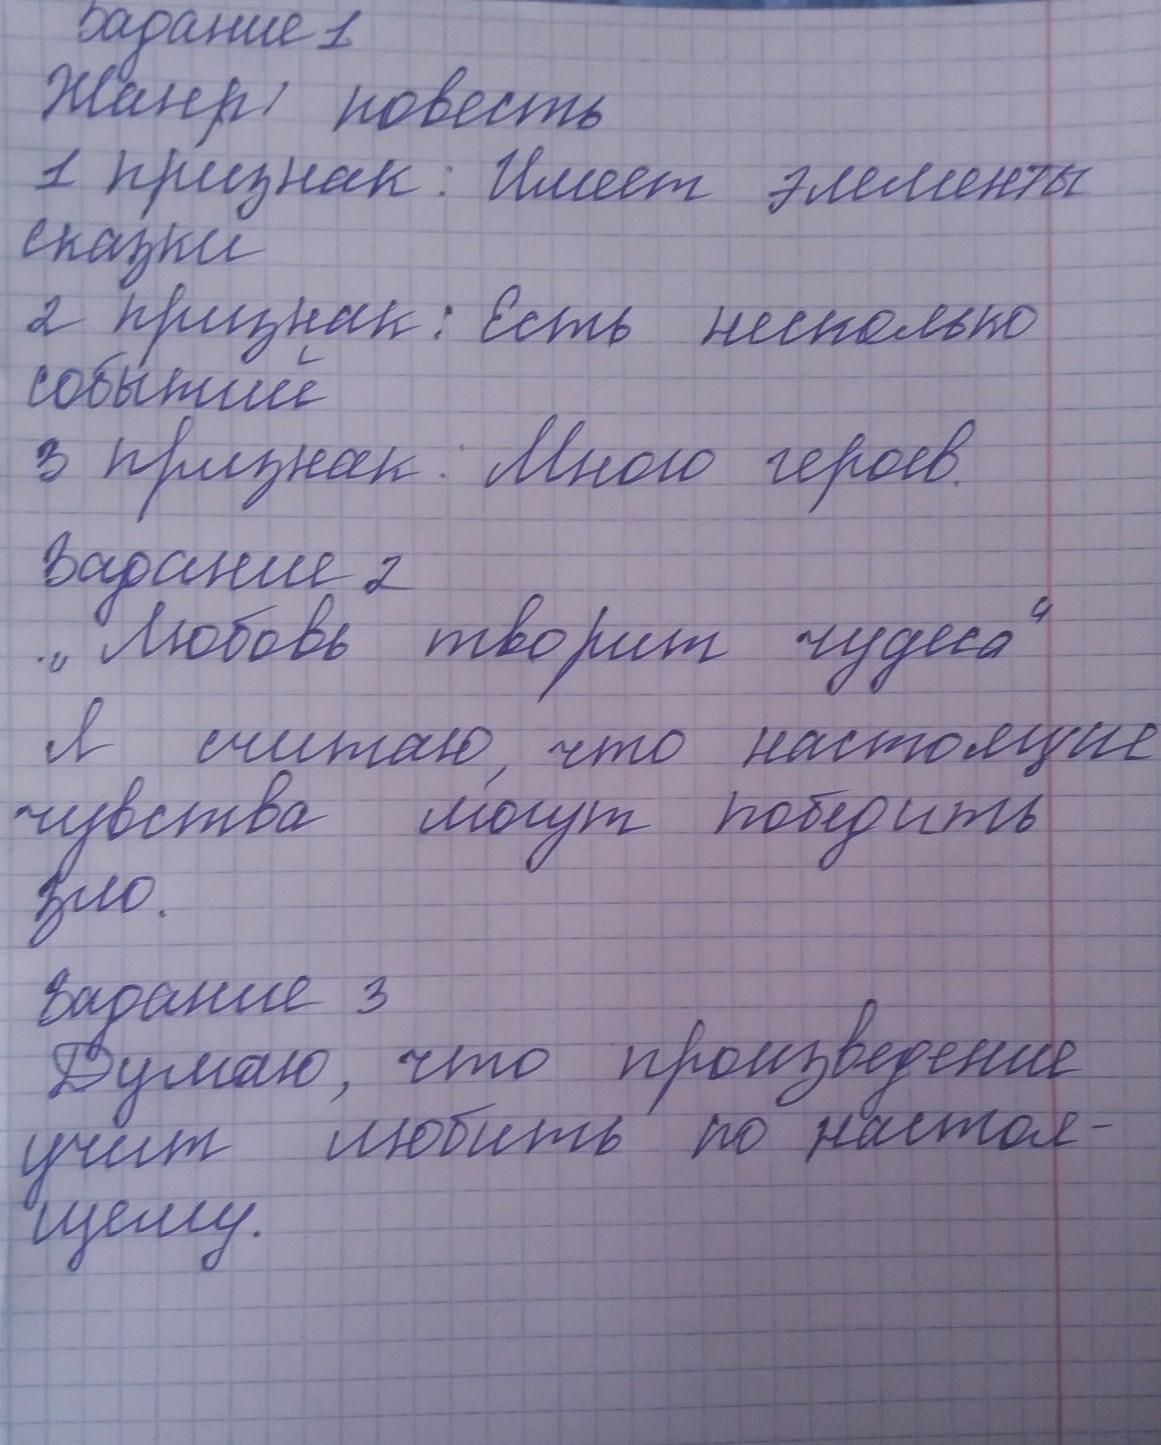 Задание 1
Жанр: повесть
1 признак: Имеет элементы
сказки
2 признак: Есть несколько
событий
3 признак: Много героев.
Задание 2
„Любовь творит чудеса“
Я считаю, что настоящие
чувства могут победить
зло.
Задание 3
Думаю, что произведение
учит любить по настоя-
щему.